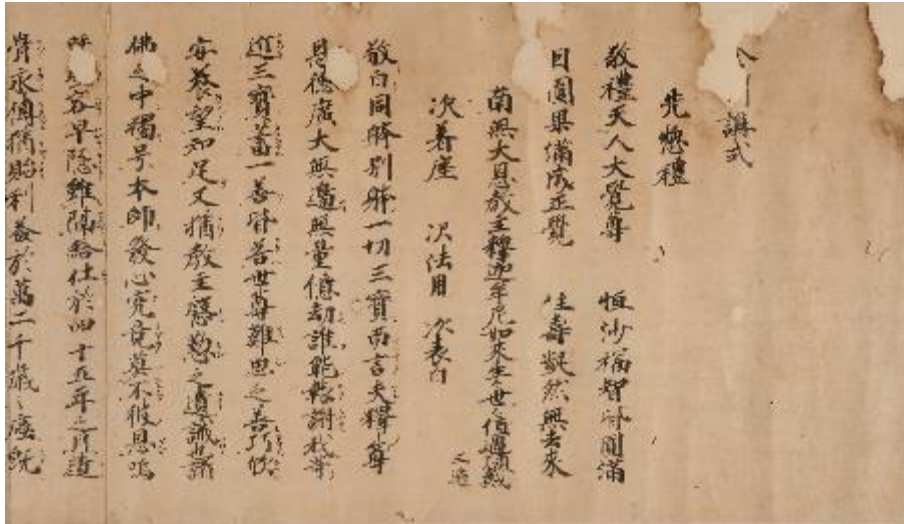 講式
先惣礼
敬禮天人大覺尊 恒沙福智皆圓滿
因圓果滿成正覺 住壽凝然無去來
南無大恩教主釋迦牟尼如来生世值遇頂戴
之遍
次着座 次法用 次表白
敬白同躰別躰一切三寶而言夫釋尊
恩德廣大無邊無量億劫誰能報謝我等
近三寶蓄一善皆善世尊難思之善巧欣
安養望知足又猶教主慇懃之遺誡諸
佛之中獨号本師發心究竟莫不彼恩嗚
容早隱雖隔給仕於四十五年之月遺
骨永傳猶貽利益於万二千歲之塵既